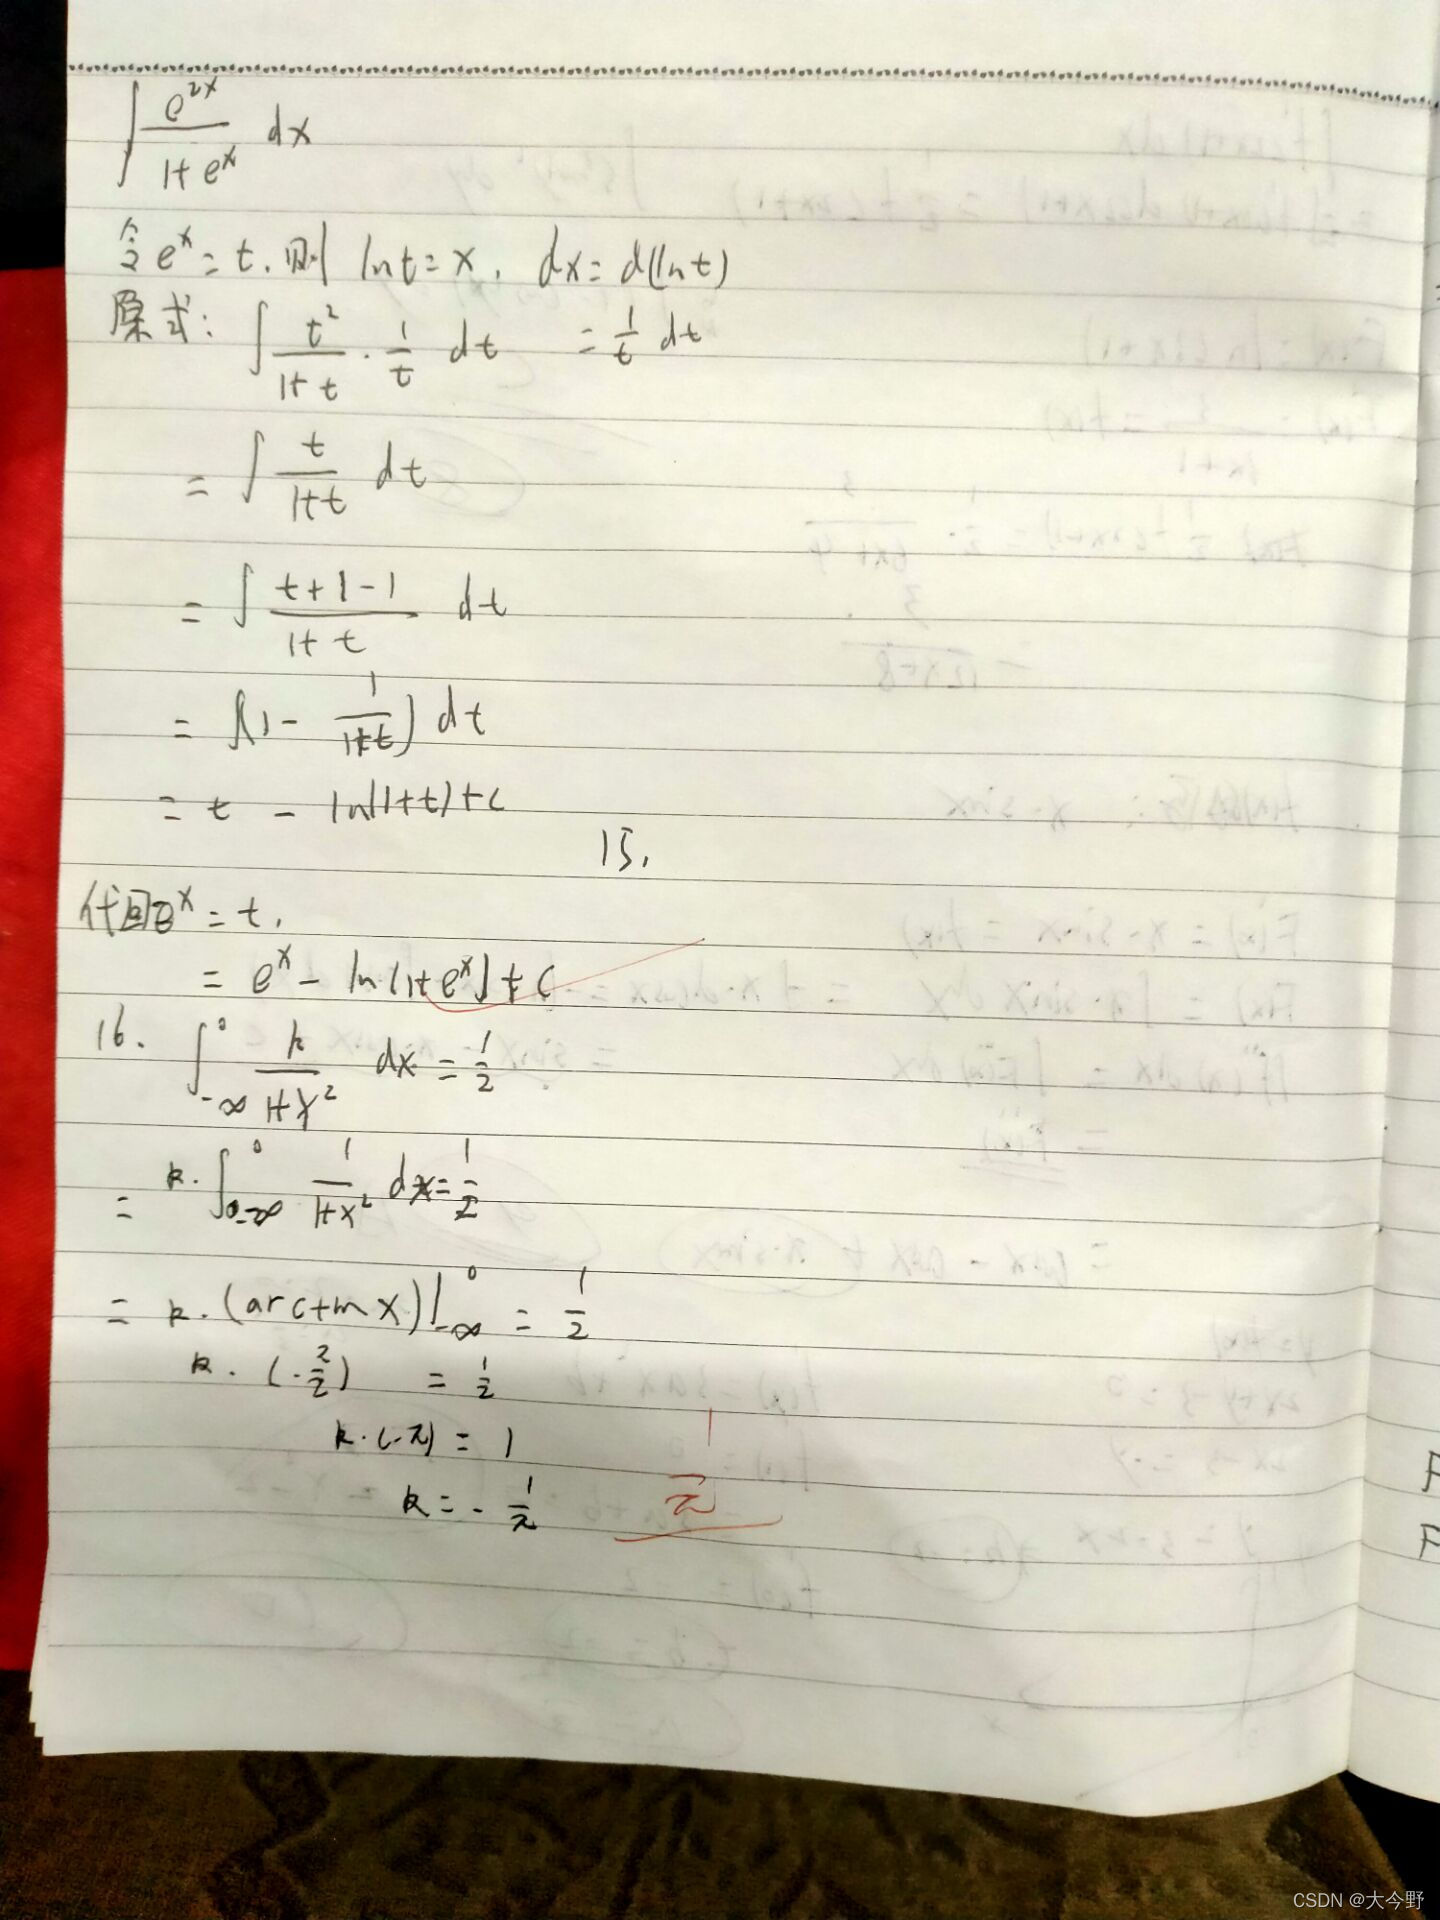 ∫ e^{2x}/(1+e^x) dx
令 e^x = t. 则 lnt = x. dx = d(lnt)
原式: ∫ t²/(1+t) · 1/t dt = 1/t dt
= ∫ t/(1+t) dt
= ∫ (t+1-1)/(1+t) dt
= ∫(1 - 1/(1+t)) dt
= t - ln(1+t)+C
15.
代回e^x = t.
= e^x - ln(1+e^x)+C
16. ∫_{-∞}^{0} k/(1+x²) dx = 1/2
= k·∫_{-∞}^{0} 1/(1+x²) dx = 1/2
= k·(arctan x)|_{-∞}^{0} = 1/2
k·(-π/2) = 1/2
k·(-π) = 1
k = -1/π
1/π
CSDN @大今野